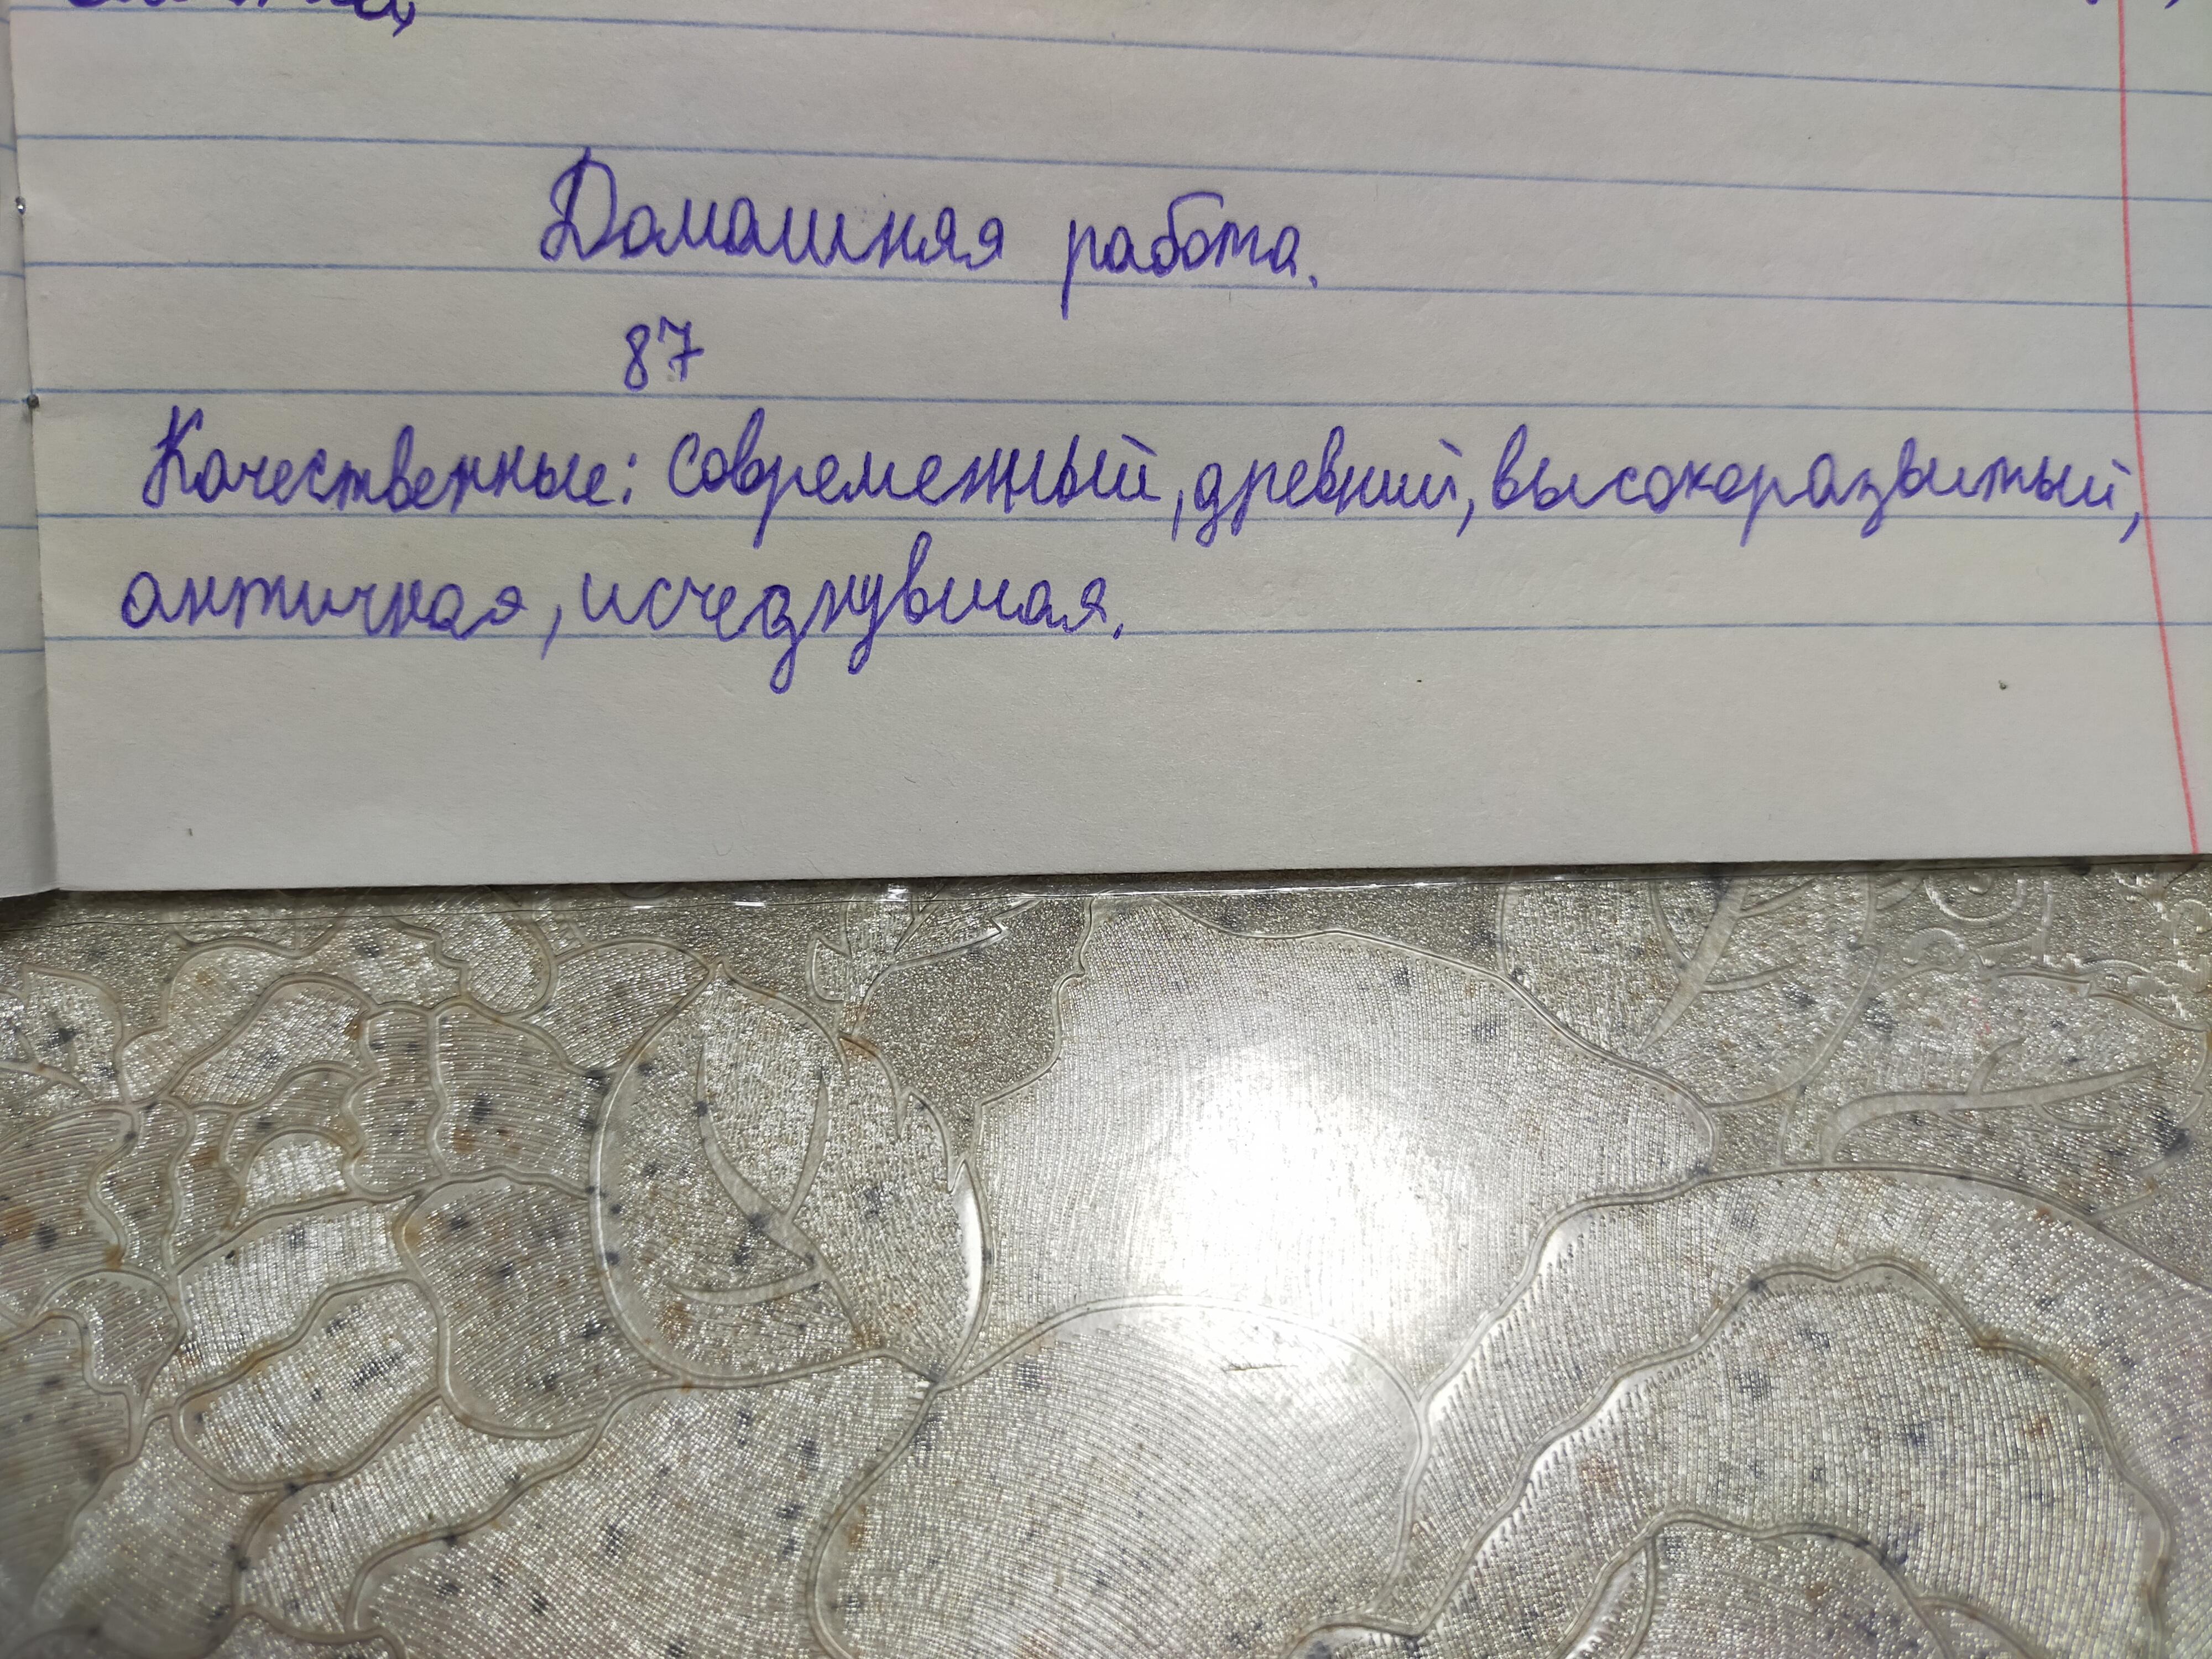 Домашняя работа.
87
Качественные: современный, древний, высокоразвитый,
античная, исчезнувшая.